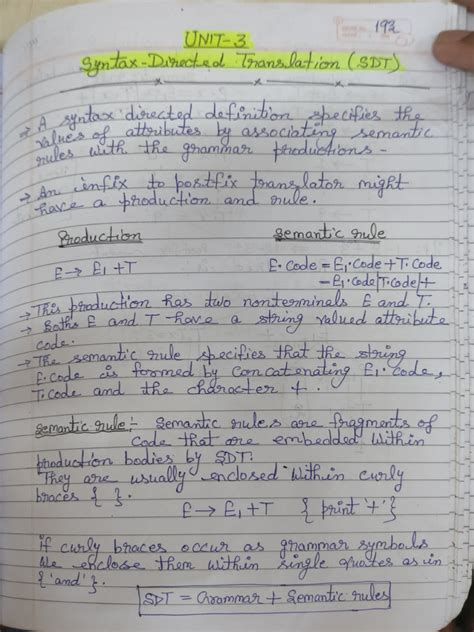 192
UNIT-3
Syntax-Directed Translation (SDT)
→ A syntax directed definition specifies the
values of attributes by associating semantic
rules with the grammar productions-
→ An infix to postfix translator might
have a production and rule.
Production Semantic rule
E → E1 + T E. Code = E1. Code + T. Code
- E1. code | T. Code | +
→ This production has two nonterminels E and T.
→ Boths E and T have a string valued attribute
code.
→ The semantic rule specifies that the string
E. code is formed by concatenating E1. code,
T. code and the character +.
Semantic rule:- Semantic rules are fragments of
Code that are embedded within
production bodies by SDT.
They are usually enclosed within curly
braces { }.
E → E1 + T { print '+' }
if curly braces occur as grammar symbols
We enclose them within single quotes as in
'{' and '}'.
SDT = Grammar + Semantic rules